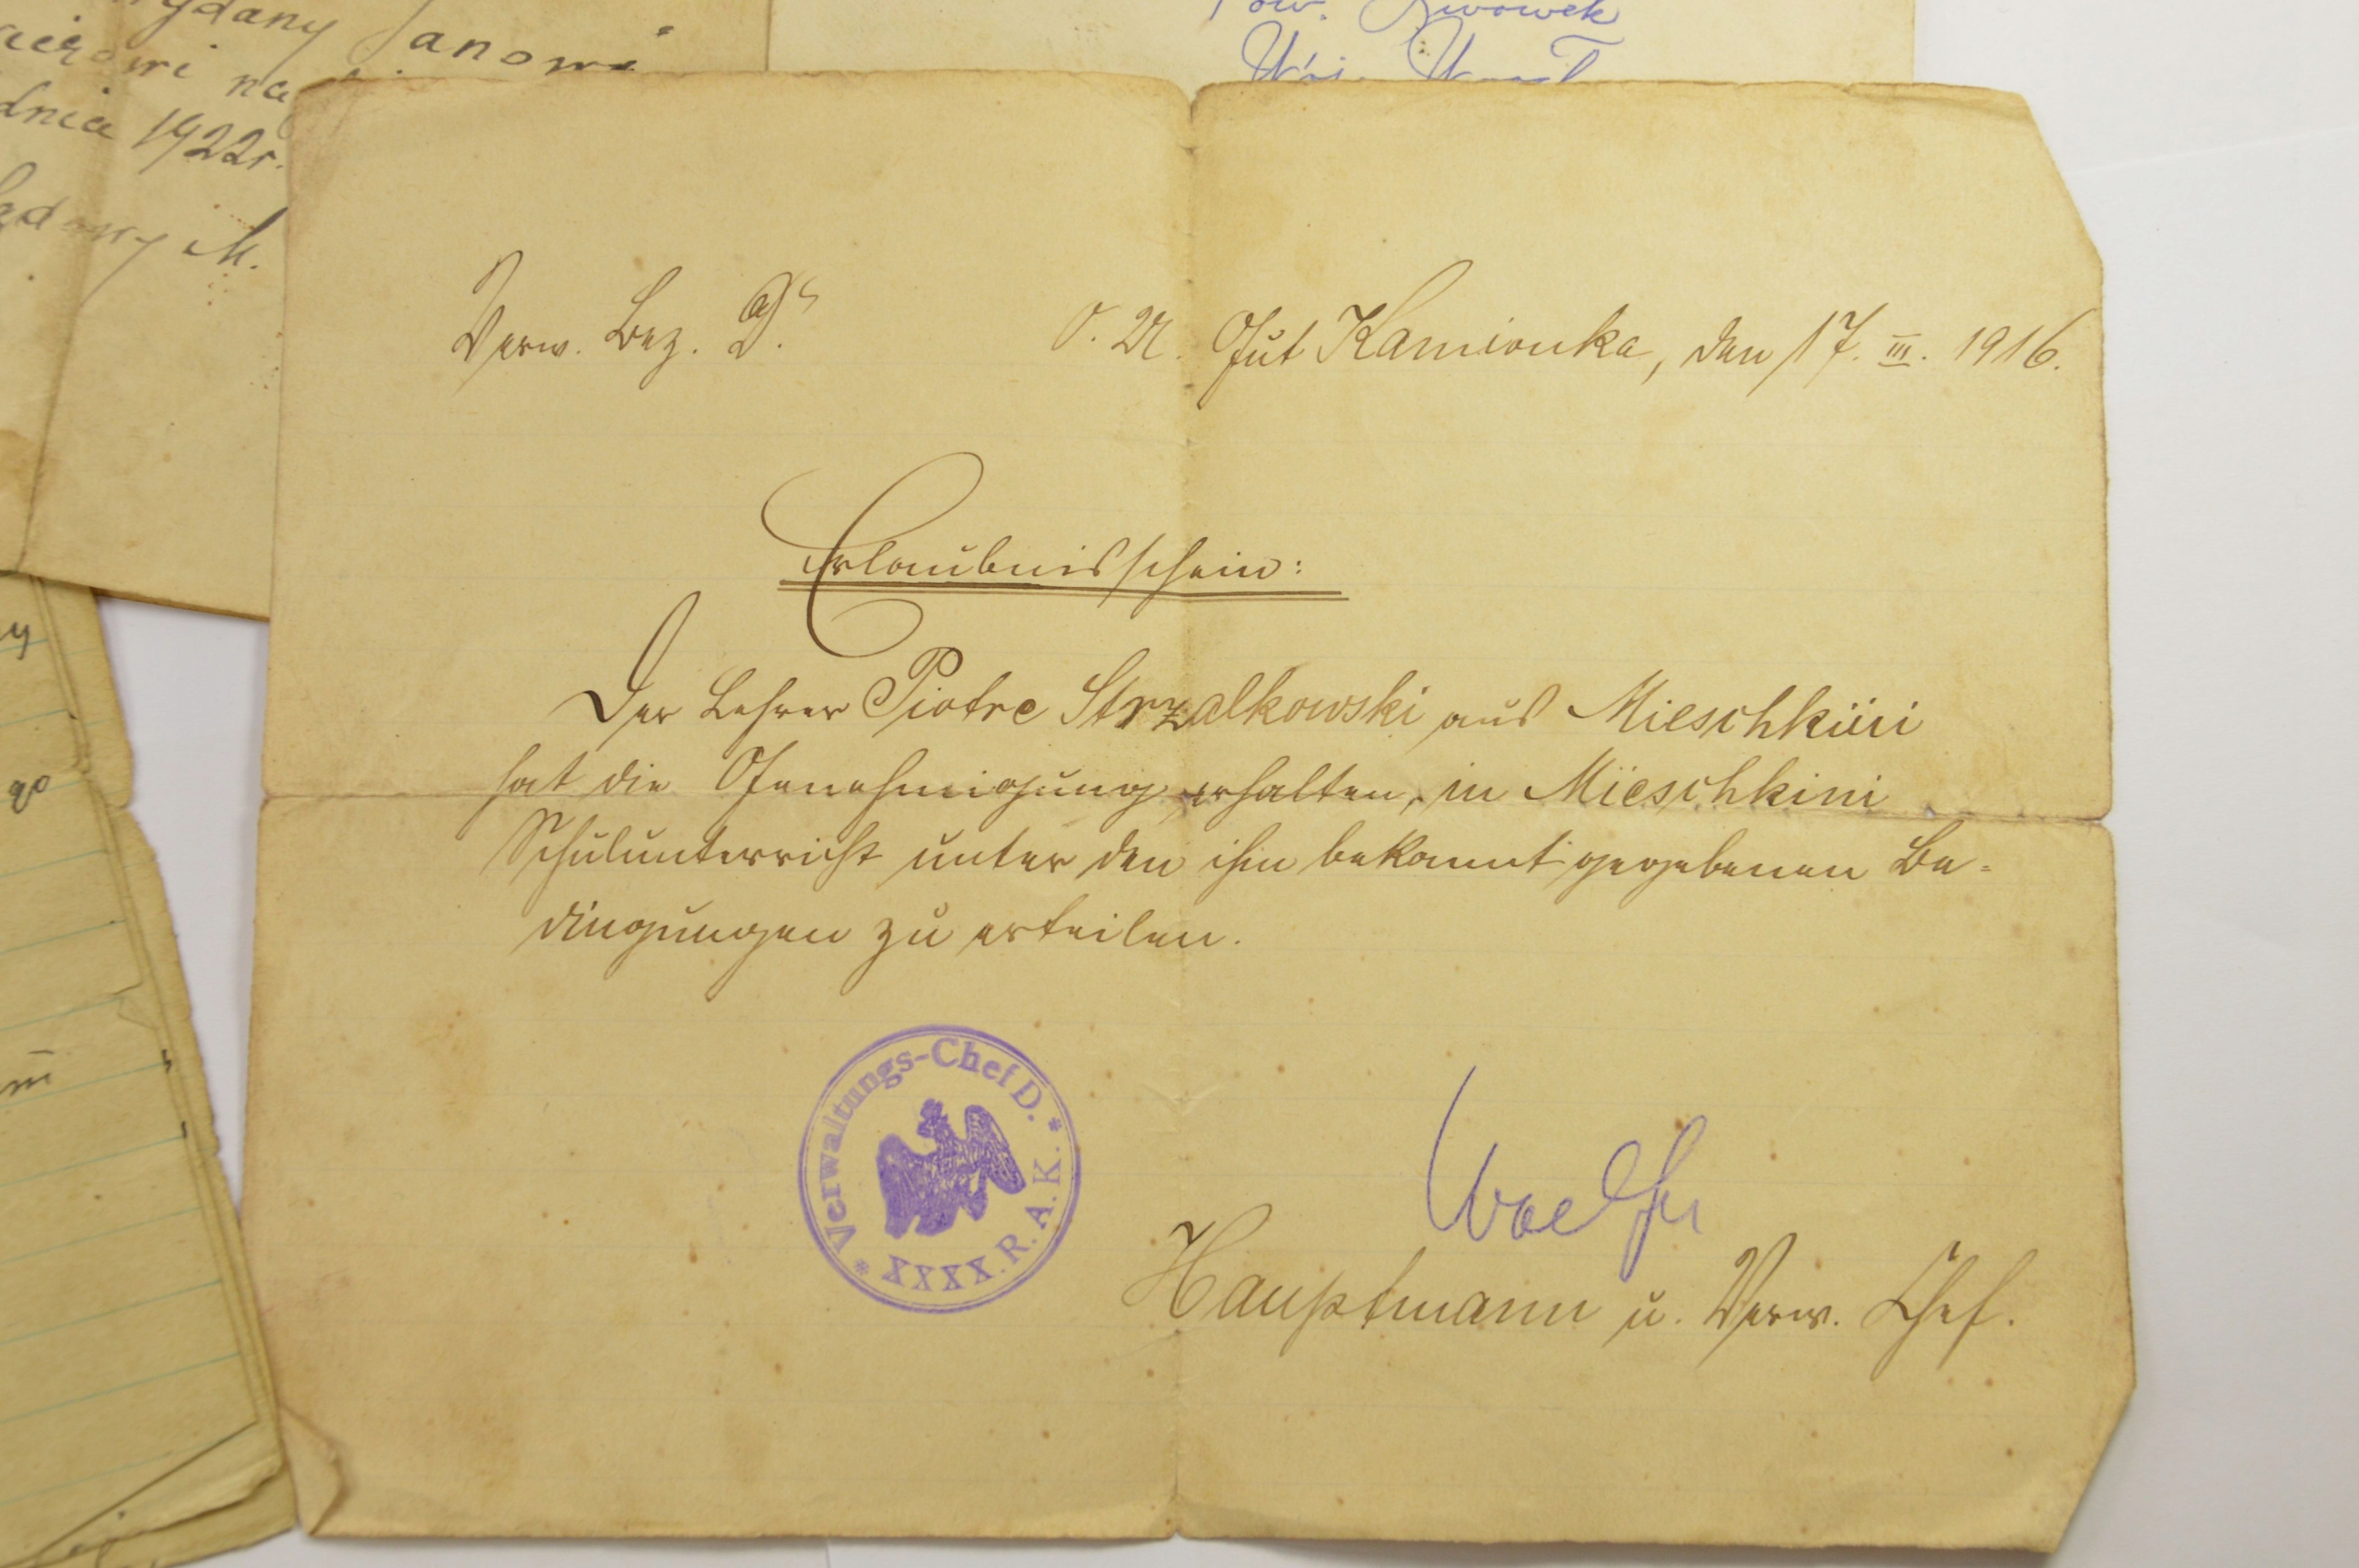 Janowi
dnia 1922r.
M.
Verw. Bez. D. O. U. Gut Kamionka, den 17. III. 1916.
Erlaubnisschein:
Der Lehrer Piotre Strzalkowski aus Mieschkini
hat die Genehmigung erhalten, in Mieschkini
Schulunterricht unter den ihm bekannt gegebenen Be-
dingungen zu erteilen.
* Verwaltungs-Chef D. *
XXXX. R. A. K.
Hauptmann u. Verw. Chef.